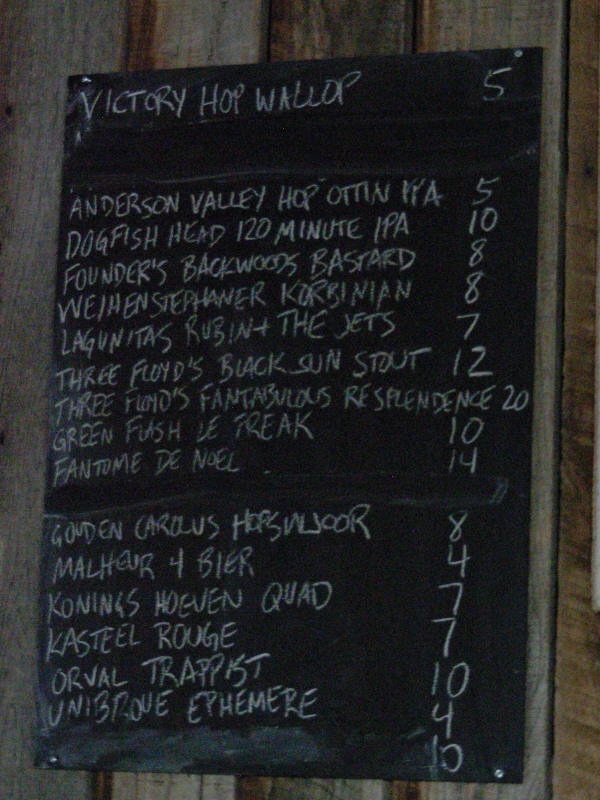 VICTORY HOP WALLOP 5
ANDERSON VALLEY HOP OTTIN IPA 5
DOGFISH HEAD 120 MINUTE IPA 10
FOUNDER'S BACKWOODS BASTARD 8
WEIHENSTEPHANER KORBINIAN 8
LAGUNITAS RUBIN + THE JETS 7
THREE FLOYD'S BLACK SUN STOUT 12
THREE FLOYD'S FANTABULOUS RESPLENDENCE 20
GREEN FLASH LE FREAK 10
FANTOME DE NOEL 14
GOUDEN CAROLUS HOPSINJOOR 8
MALHEUR 4 BIER 4
KONINGS HOEVEN QUAD 7
KASTEEL ROUGE 7
ORVAL TRAPPIST 10
UNIBROUE EPHEMERE 4
10